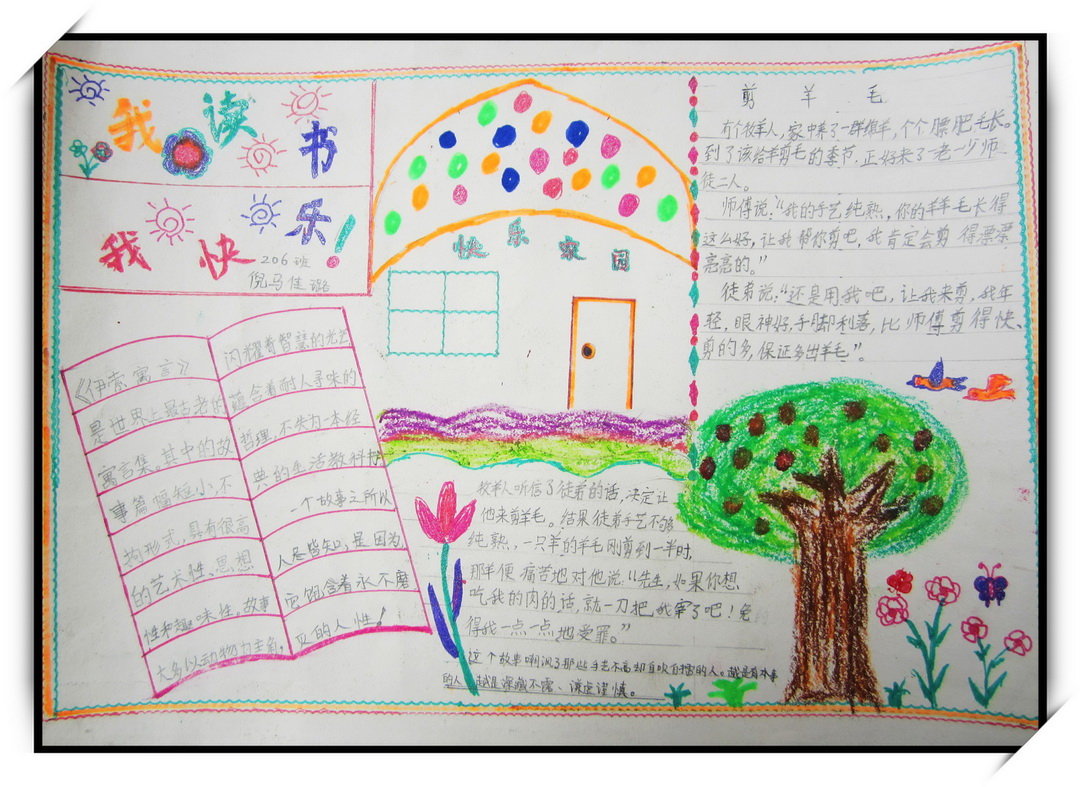 我读书
我快乐!
206班
倪马佳璐
《伊索寓言》
是世界上最古老的
寓言集。其中的故
事篇幅短小,不
拘形式,具有很高
的艺术性、思想
性和趣味性。故事
大多以动物为主角,
闪耀着智慧的光芒
蕴含着耐人寻味的
哲理,不失为一本经
典的生活教科书
一个故事之所以
人尽皆知,是因为,
它饱含着永不磨
灭的人性!
快乐家园
剪羊毛
有个牧羊人,家中养了一群绵羊,个个膘肥毛长。
到了该给羊剪毛的季节,正好来了一老一少师
徒二人。
师傅说:“我的手艺纯熟,你的羊羊毛长得
这么好,让我帮你剪吧,我肯定会剪得漂漂
亮亮的。”
徒弟说:“还是用我吧,让我来剪,我年
轻,眼神好,手脚利落,比师傅剪得快、
剪的多,保证多出羊毛”。
牧羊人听信了徒弟的话,决定让
他来剪羊毛。结果徒弟手艺不够
纯熟,一只羊的羊毛刚剪到一半时,
那羊便痛苦地对他说:“先生,如果你想
吃我的肉的话,就一刀把我宰了吧!免
得我一点一点地受罪。”
这个故事嘲讽了那些手艺不高却自吹自擂的人。越是有本事
的人,越是深藏不露、谦虚谨慎。